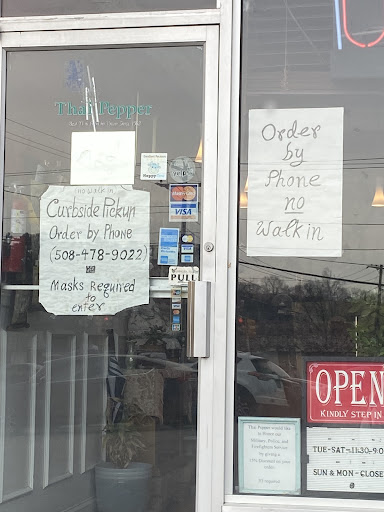 Thai Pepper
no walk in
Curbside Pickup
Order by Phone
(508-478-9022)
Masks Required
to
enter
MasterCard
VISA
PULL
Order
by
Phone
no
Walk in
OPEN
KINDLY STEP IN
TUE-SAT-11:30-9:0
SUN & MON-CLOSE
Thai Pepper would like
to Honor our
Military, Police, and
Firefighters Service
by giving a
15% Discount on your
order.
ID required